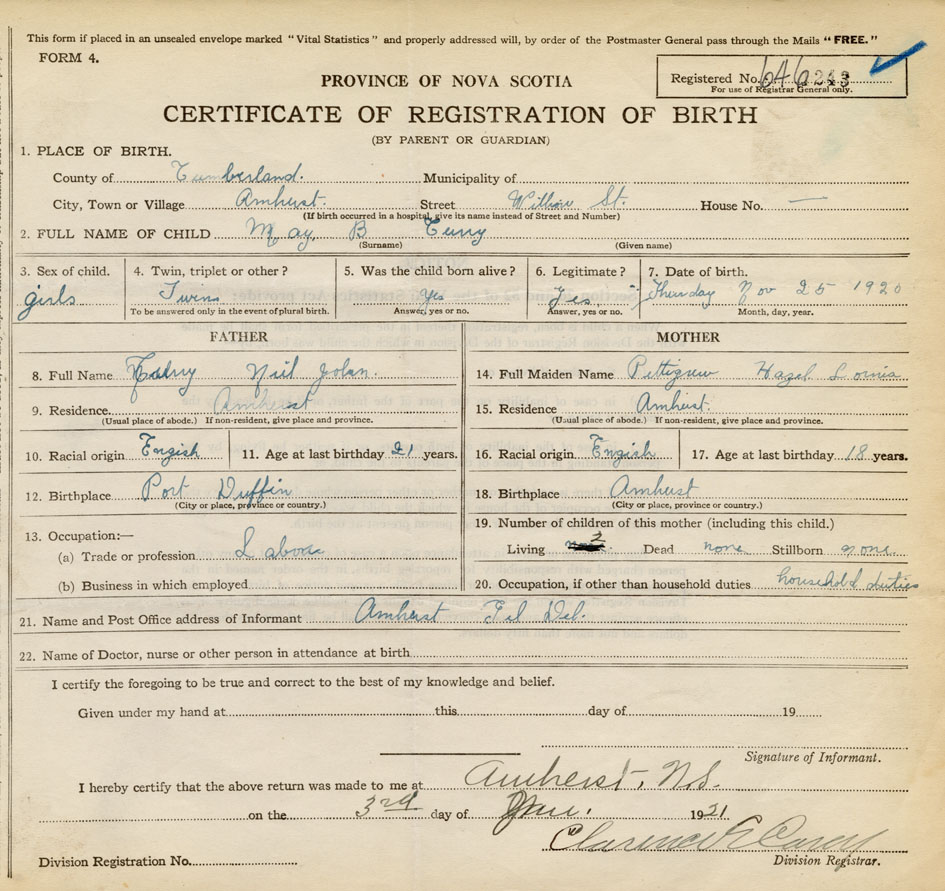 This form if placed in an unsealed envelope marked "Vital Statistics" and properly addressed will, by order of the Postmaster General pass through the Mails "FREE."
FORM 4.
Registered No. 646243
For use of Registrar General only.
PROVINCE OF NOVA SCOTIA
CERTIFICATE OF REGISTRATION OF BIRTH
(BY PARENT OR GUARDIAN)
1. PLACE OF BIRTH.
County of Cumberland. Municipality of
City, Town or Village Amherst. Street Willow St. House No. —
(If birth occurred in a hospital, give its name instead of Street and Number)
2. FULL NAME OF CHILD May. B
(Surname) (Given name)
3. Sex of child. 4. Twin, triplet or other? 5. Was the child born alive? 6. Legitimate? 7. Date of birth.
girls Twins Yes Yes Thursday Nov 25 1920
To be answered only in the event of plural birth. Answer, yes or no. Answer, yes or no. Month, day, year.
FATHER MOTHER
8. Full Name Neil John. 14. Full Maiden Name Pettigrew Hazel
9. Residence. Amherst 15. Residence Amherst.
(Usual place of abode.) If non-resident, give place and province. (Usual place of abode.) If non-resident, give place and province.
10. Racial origin Engish 11. Age at last birthday 21 years. 16. Racial origin Engish 17. Age at last birthday 18 years.
12. Birthplace Port Duffin 18. Birthplace Amherst
(City or place, province or country.) (City or place, province or country.)
13. Occupation:— 19. Number of children of this mother (including this child.)
(a) Trade or profession Labour Living 2 Dead none Stillborn none
(b) Business in which employed 20. Occupation, if other than household duties household duties
21. Name and Post Office address of Informant Amherst
22. Name of Doctor, nurse or other person in attendance at birth
I certify the foregoing to be true and correct to the best of my knowledge and belief.
Given under my hand at this day of 19
Signature of Informant.
I hereby certify that the above return was made to me at Amherst, N.S.
on the 3rd day of Jan. 1921
Clarence E Casey
Division Registration No. Division Registrar.